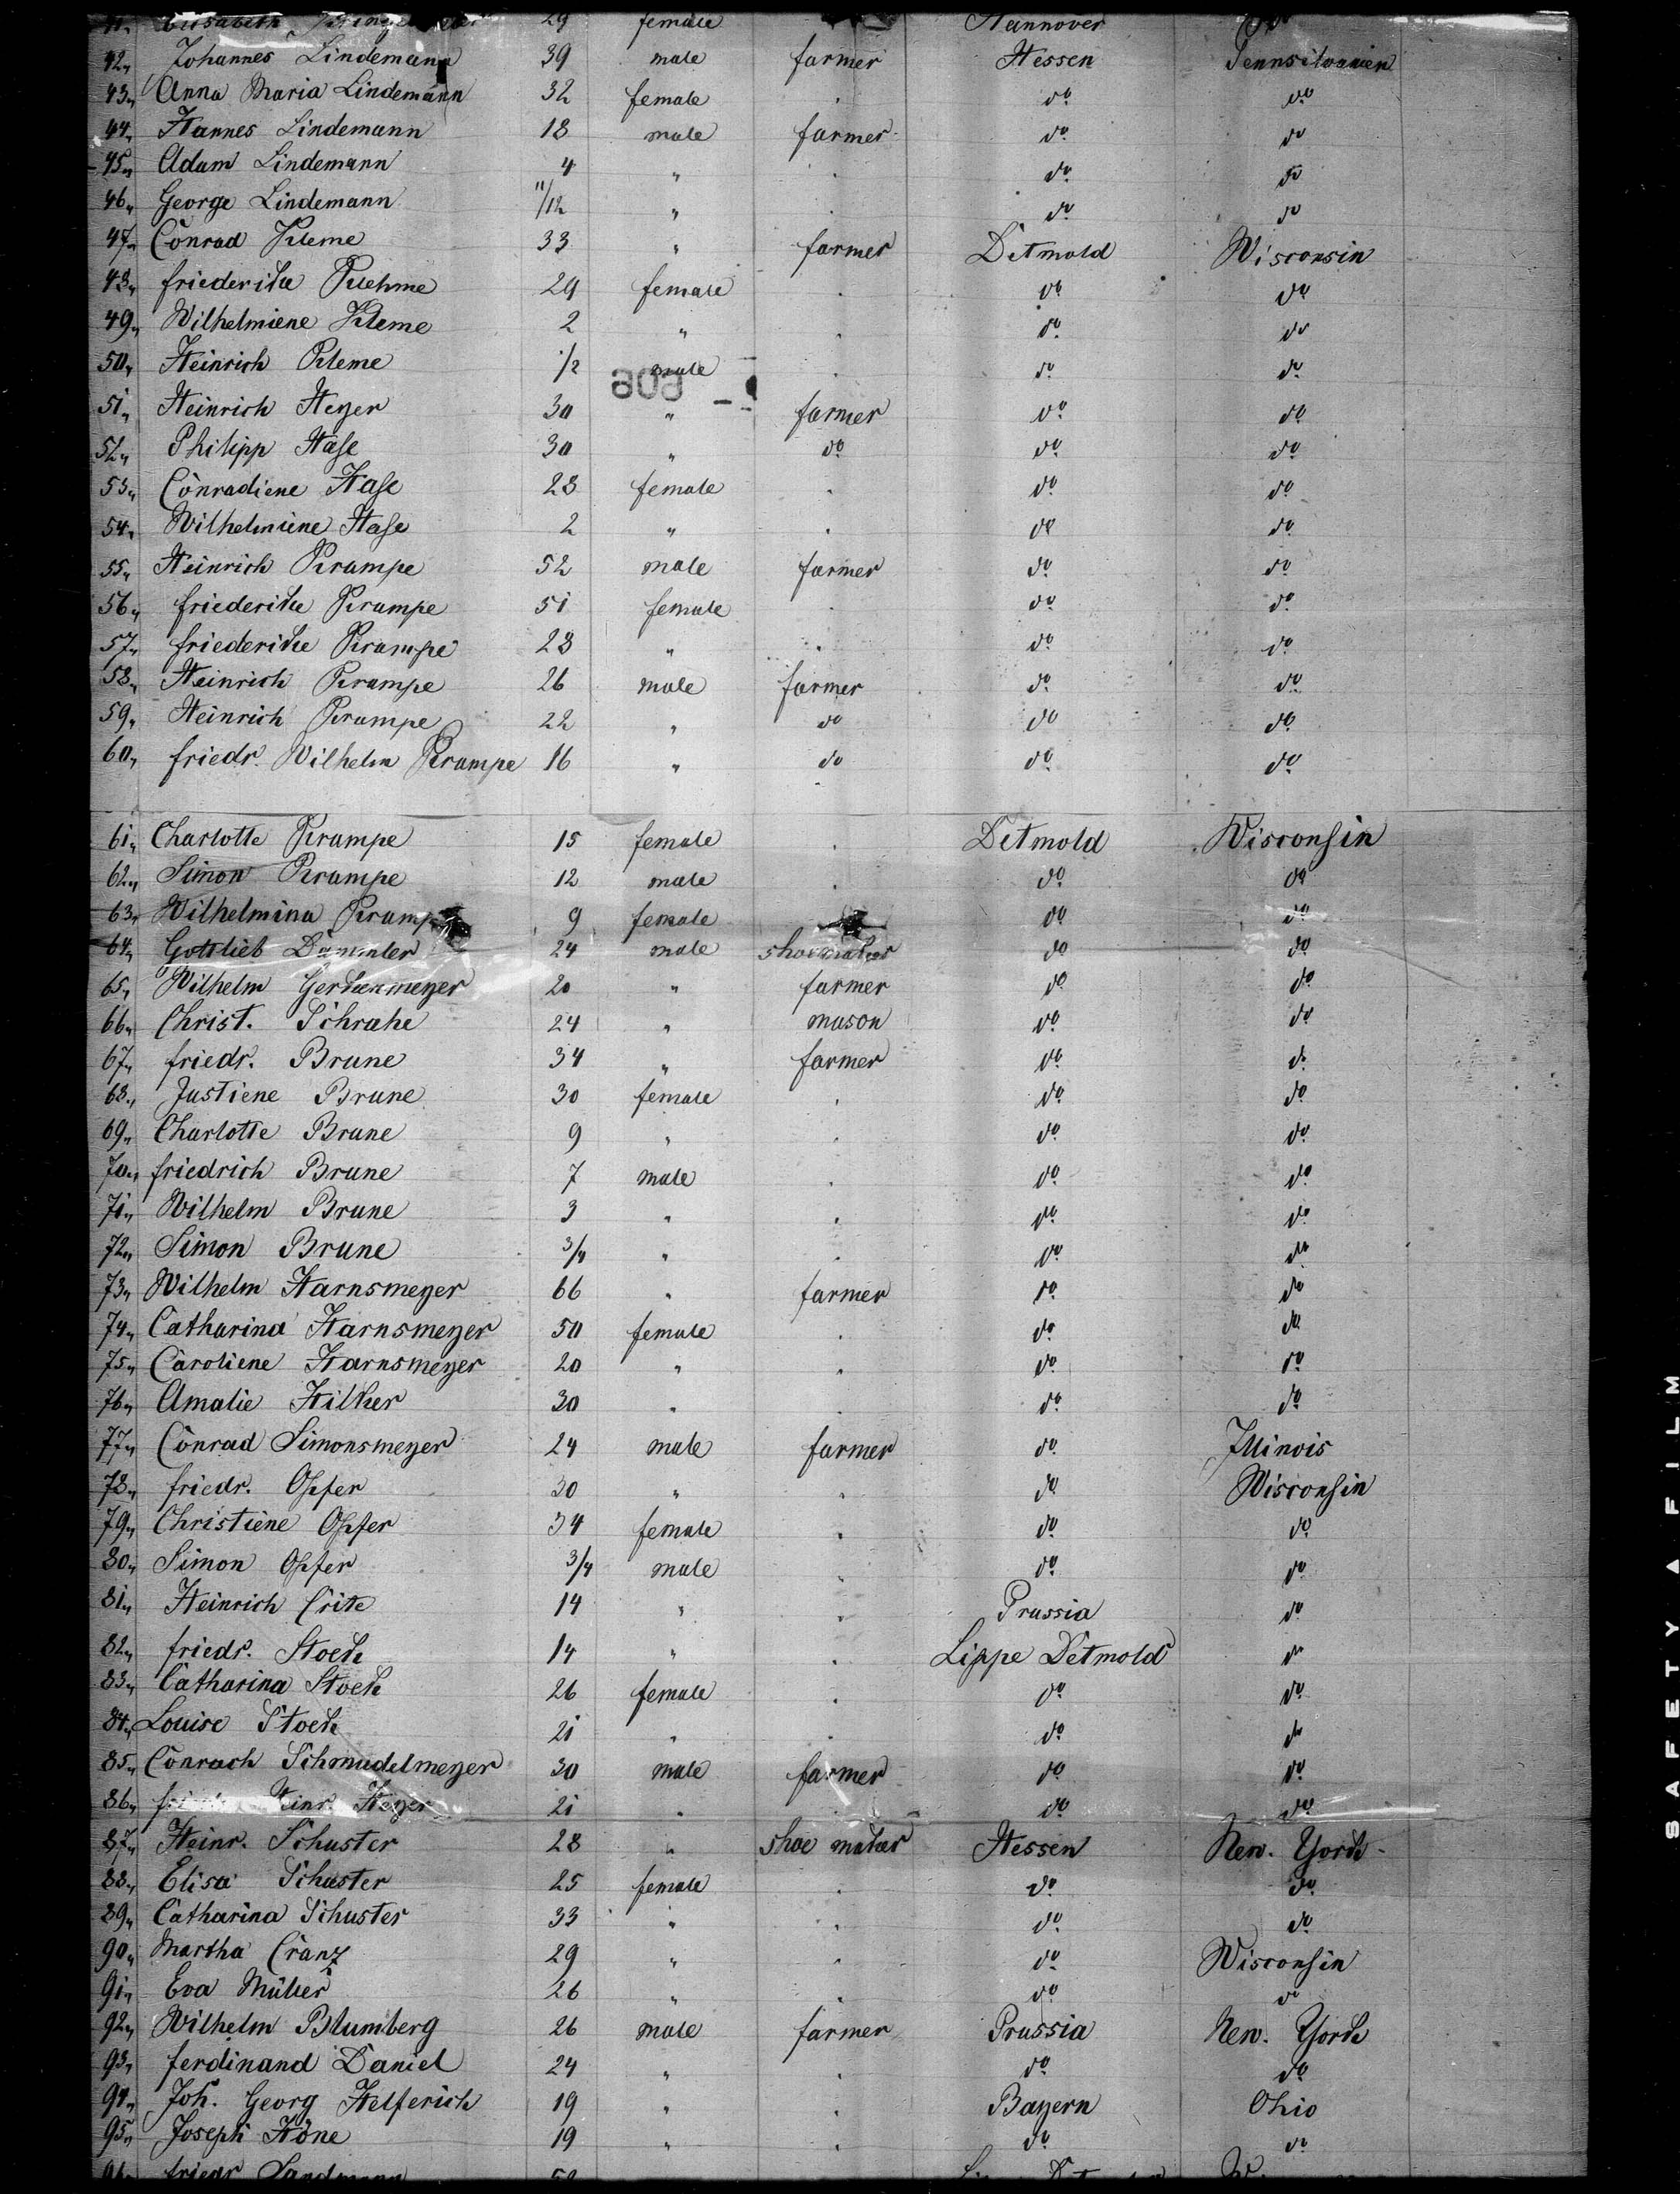 41. Elisabeth 29 female Hannover
42. Johannes Lindemann 39 male farmer Hessen Pennsilvanien
43. Anna Maria Lindemann 32 female . do do
44. Hannes Lindemann 18 male farmer do do
45. Adam Lindemann 4 " . do do
46. George Lindemann 11/12 " . do do
47. Conrad Kleme 33 " farmer Detmold Wisconsin
48. friederike Klehme 29 female . do do
49. Wilhelmiene Kleme 2 " . do do
50. Heinrich Kleme 1/2 male . do do
51. Heinrich Heyer 30 " farmer do do
52. Philipp Hase 30 " do do do
53. Conradiene Hase 28 female . do do
54. Wilhelmiene Hase 2 " . do do
55. Heinrich Krampe 52 male farmer do do
56. friederike Krampe 51 female . do do
57. friederike Krampe 28 " . do do
58. Heinrich Krampe 26 male farmer do do
59. Heinrich Krampe 22 " do do do
60. friedr. Wilhelm Krampe 16 " do do do
61. Charlotte Krampe 15 female . Detmold Wisconsin
62. Simon Krampe 12 male . do do
63. Wilhelmina Krampe 9 female do do
64. Gottlieb Dammler 24 male shoemaker do do
65. Wilhelm Gerkenmeyer 20 " farmer do do
66. Christ. Schrahe 24 " mason do do
67. friedr. Brune 34 " farmer do do
68. Justiene Brune 30 female . do do
69. Charlotte Brune 9 " . do do
70. friedrich Brune 7 male . do do
71. Wilhelm Brune 3 " . do do
72. Simon Brune 3/4 " . do do
73. Wilhelm Harnsmeyer 66 " farmer do do
74. Catharina Harnsmeyer 50 female . do do
75. Caroliene Harnsmeyer 20 " . do do
76. Amalie Hilker 30 " . do do
77. Conrad Simonsmeyer 24 male farmer do Illinois
78. friedr. Opfer 30 " " do Wisconsin
79. Christiene Opfer 34 female . do do
80. Simon Opfer 3/4 male . do do
81. Heinrich Crite 14 " . Prussia do
82. friedr. Stoek 14 " . Lippe Detmold do
83. Catharina Stoek 26 female . do do
84. Louise Stoek 21 " . do do
85. Conrach Schmudelmeyer 30 male farmer do do
86. Heinr. Heyer 21 " . do do
87. Heinr. Schuster 28 " shoe maker Hessen New. York
88. Elisa Schuster 25 female . do do
89. Catharina Schuster 33 " . do do
90. Martha Cranz 29 " . do Wisconsin
91. Eva Müller 26 " . do do
92. Wilhelm Blumberg 26 male farmer Prussia New. York
93. ferdinand Daniel 24 " . do do
94. Joh. Georg Helferich 19 " . Bayern Ohio
95. Joseph Höne 19 " . do do
96. friedr Landmann
SAFETY A FILM